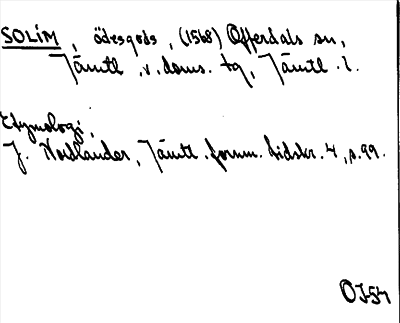 SOLÍM, ödesgods, (1568) Offerdals sn,
Jämtl. v. doms. tg, Jämtl. l.
Etymologi:
J. Nordlander, Jämtl. fornm. tidskr. 4, s. 99.
OJ54